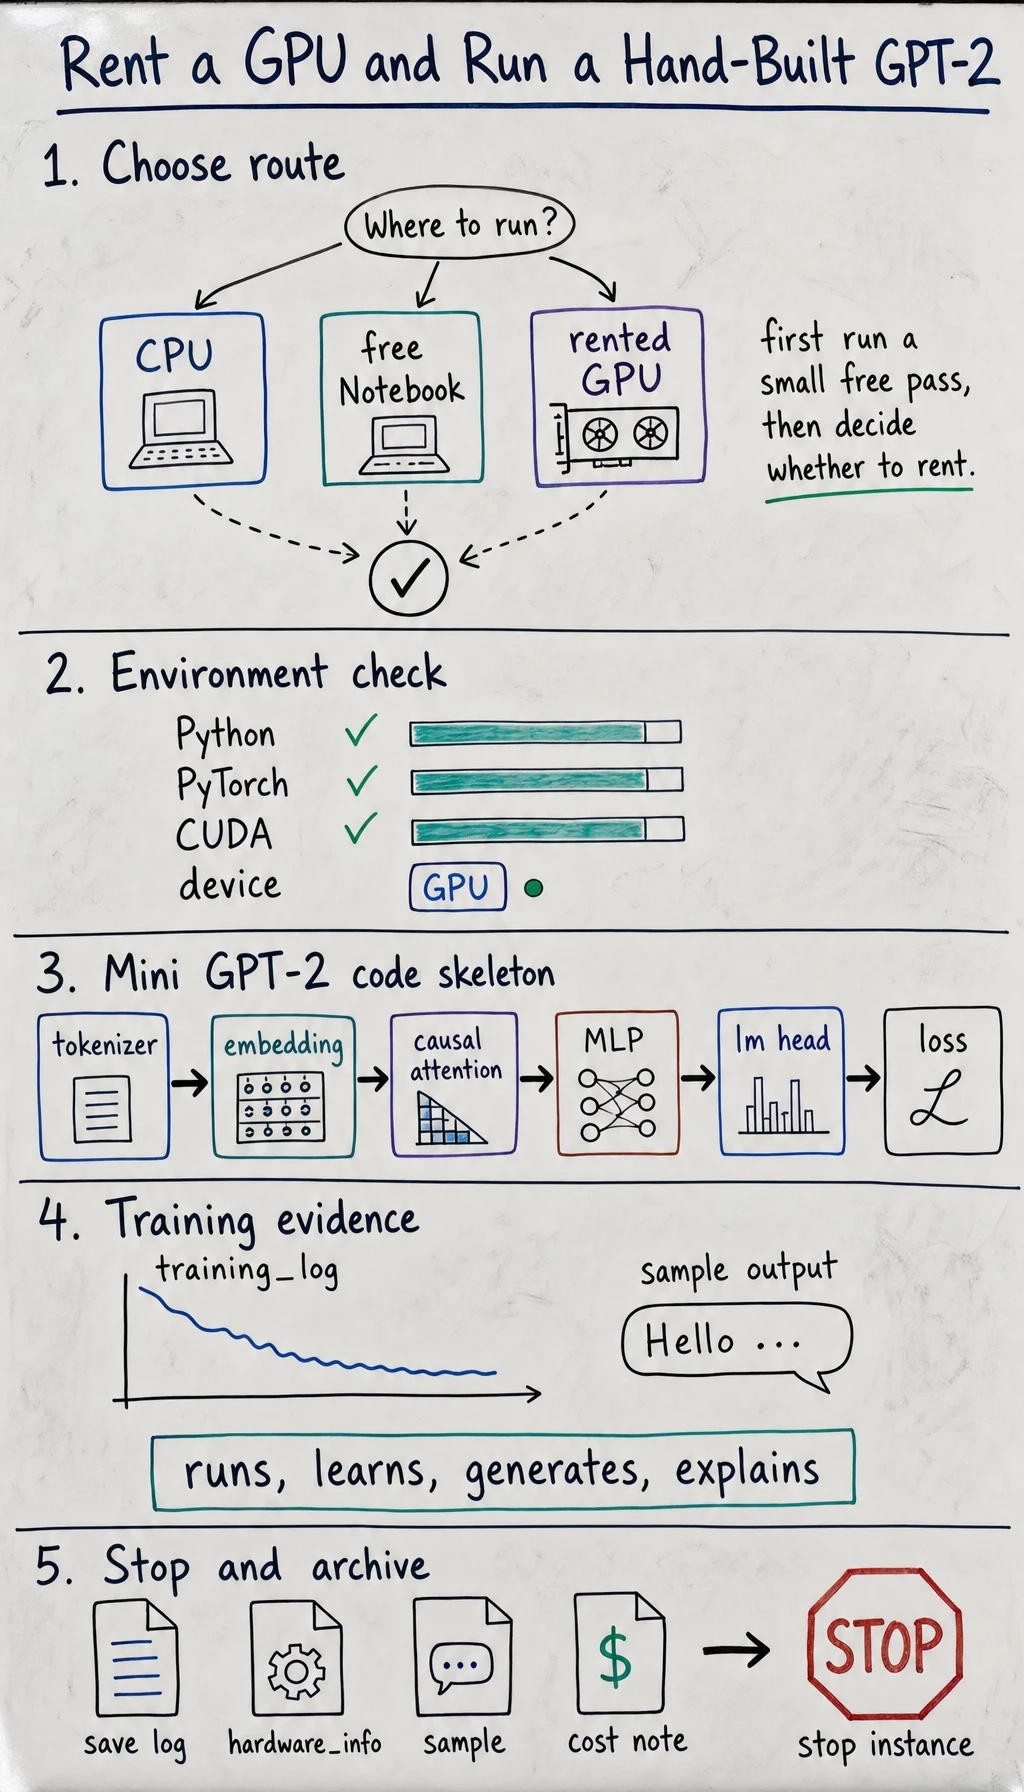 Rent a GPU and Run a Hand-Built GPT-2
1. Choose route
Where to run?
CPU
free
Notebook
rented
GPU
first run a
small free pass,
then decide
whether to rent.
2. Environment check
Python
PyTorch
CUDA
device
GPU
3. Mini GPT-2 code skeleton
tokenizer
embedding
causal
attention
MLP
lm head
loss
L
4. Training evidence
training_log
sample output
Hello ...
runs, learns, generates, explains
5. Stop and archive
$
STOP
save log
hardware_info
sample
cost note
stop instance